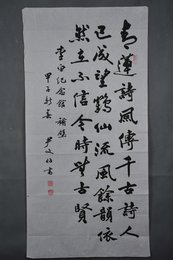 青蓮詩風傳千古詩人
已成望鶴仙流風餘韻依
然在不信今時無古賢
李白紀念館補壁
甲子新春 尹文价書